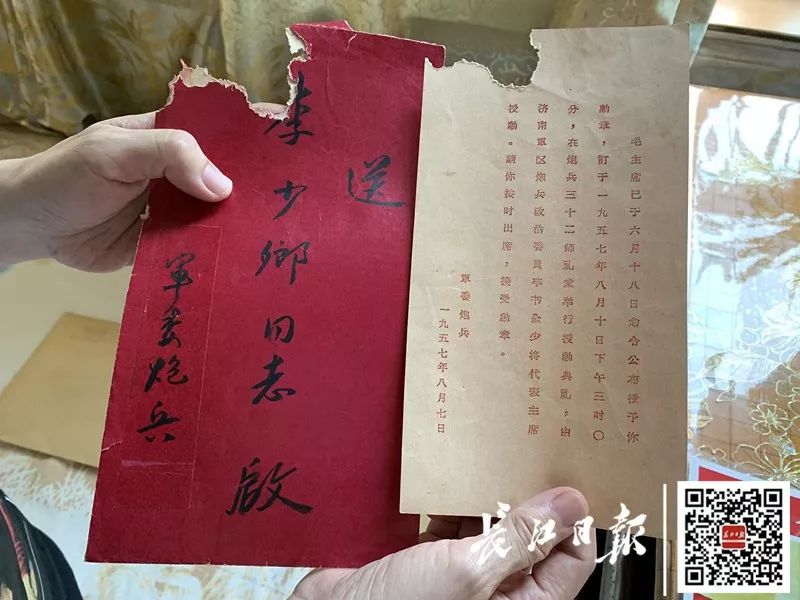 送
李少鄉同志 啟
军委炮兵
毛主席已于六月十八日命令公布授予你
勳章，訂于一九五七年八月十日下午三时〇
分，在炮兵三十二师礼堂举行授勳典礼，由
济南軍区炮兵政治委員李书少将代表主席
授勳。請你按时出席，接受勳章。
軍委炮兵
一九五七年八月七日
长江日報